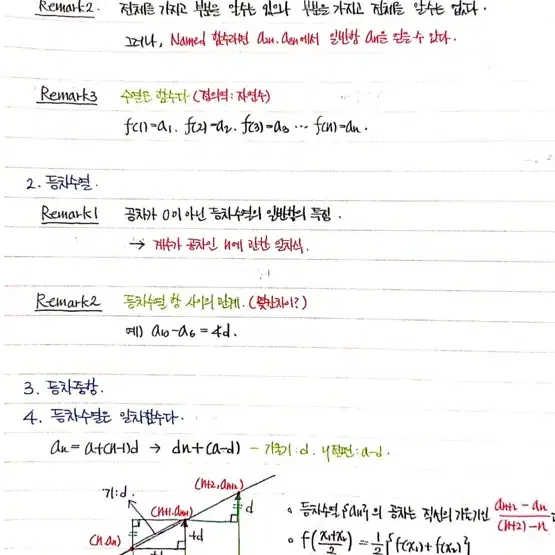 Remark2. 전체를 가지고 부분을 알수는 있으나 부분을 가지고 전체를 알수는 없다.
그러나, Named 함수라면 a2n, a6n에서 일반항 an을 얻을 수 있다.
Remark3 수열은 함수다 (정의역: 자연수)
f(1)=a1. f(2)=a2. f(3)=a3 ··· f(n)=an.
2. 등차수열.
Remark1 공차가 0이 아닌 등차수열의 일반항의 특징.
→ 계수가 공차인 n에 관한 일차식.
Remark2 등차수열 항 사이의 관계. (몇칸차이?)
예) a10-a6 = 4d.
3. 등차중항.
4. 등차수열은 일차함수다.
an = a+(n-1)d → dn+(a-d) - 기울기: d. y절편: a-d.
(n+2, an+2)
기: d.
(n+1, an+1)
d
◦ 등차수열 {an}의 공차는 직선의 기울기인 an+2 - an / (n+2)-n
(n, an)
+d
◦ f(x1+x2 / 2) = 1/2 {f(x1)+f(x2)}